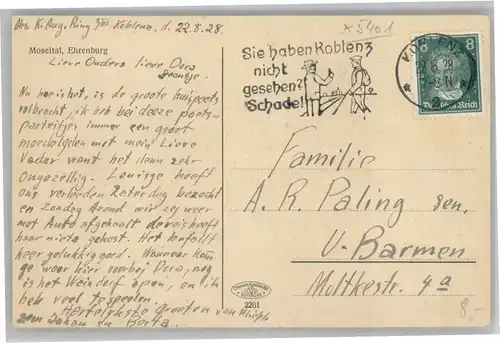 Abs. K. Aug. Ring 3 III Koblenz, d. 22.8.28.
Moseltal, Ehrenburg
Lieve Ouders lieve Dora
Nu hoe is het, is de groote huispoets
volbracht, ik heb bij deeze poets-
partijtjes immer een groot
medelijden met mijn Lieve
Vader want het denn zehr
ongezellig. Louisje heeft
ons verleeden Zaterdag bezocht
en zondag Avond wij zij weer
met Auto afgehaalt de reis heeft
haar niets gekost. Het befallt
heer gelukkig goed. Wanneer kom
ge waar hier voorbij Dora, nog
is het Weindorf open, en ik
heb veel te speelen.
Hertelykste Groeten van
Johan en
x 5401
Sie haben Koblenz
nicht
gesehen?
Schade!
KOBLENZ
8.28
8 8
Deutsches Reich
Familie
A. R. Paling sen.
U. Barmen
Moltkestr. 4a
2261
8,-